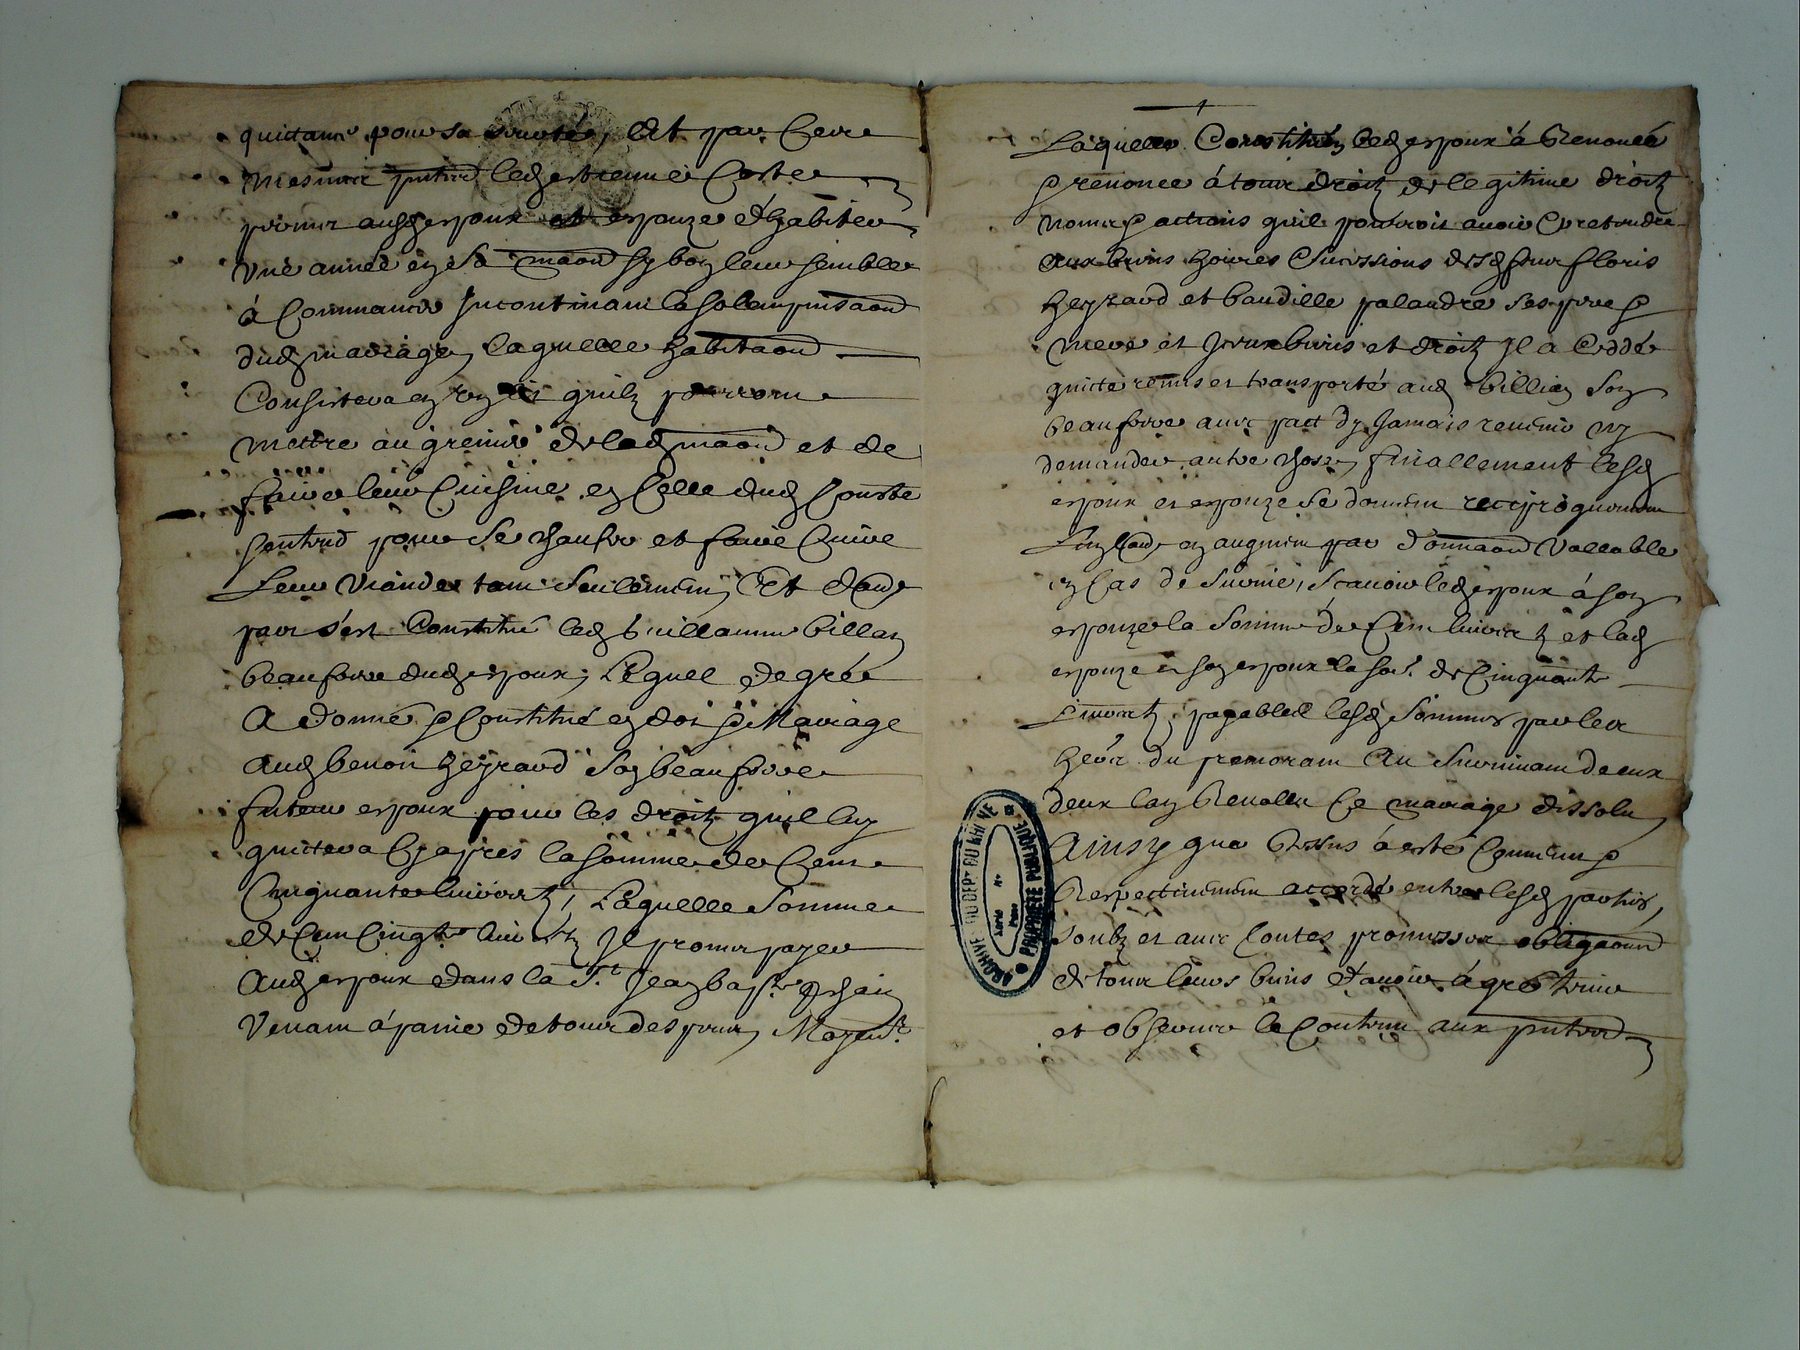 quittance pour sa dite, Et par Ces
mesmes pntes led estienne Coste
promet ausd espoux et espouze d'habiter
une année en sa maon sy bon leur semble
à Commancer Incontinant la solempnisaon
dud mariage, laquelle habitaon
Consistera en qu'ilz pourront
mettre au grenier de lad maon et de
faire leur Cuisine en Celle dud Couste
pour se chaufer et faire Cuire
Leur viande tant seulement, Et d'autre
part s'est Constitué led Guillaume billon
beaufrere dud espoux, Lequel de gré
a donné & Constitué en dot & Mariage
aud benoit heyraud son beaufrere
futeur espoux pour les droitz qu'il luy
quittera Cy apres la somme de Cent
Cinquante livres tz, Laquelle somme
de Cent Cinqte livres tz Il promet payer
aud espoux dans la St Jean bapte prochain
venant à paine de tous despens, Moyent
Laquelle Constitution led espoux à Renoncé
& renonce à tous droitz de legitime droitz
noms & actions qu'il pourroit avoir & pretendre
aux biens hoires & successions desd sieur floris
heyraud et baudille palandre ses pere &
mere et Iceux biens et droitz Il a Ceddé
quitté remis et transporté aud billion son
beaufrere avec pact dy Jamais revenir ny
demander autre chose, finallement lesd
espoux et espouze se donnent reciproquement
L'un l'autre en augment par donnaon vallable
en Cas de survie, Scavoir led espoux à son
espouze la somme de Cent livres tz et lad
espouze a son espoux la so.e de Cinquante
Livres tz, payables lesd sommes par les
heoirs du premorant au survivant d'eux
deux l'an Revollu Ce mariage dissolu,
Ainsy que dessus à esté Convenu &
Respectivement accordé entre lesd parties,
Soubz et avec toutes promesses obligaons
de tous leurs biens d'avoir à gré tenir
et observer le Contenu aux pntes
ARCHIVE DU DEPT DU RHONE
PROPRIETE PUBLIQUE